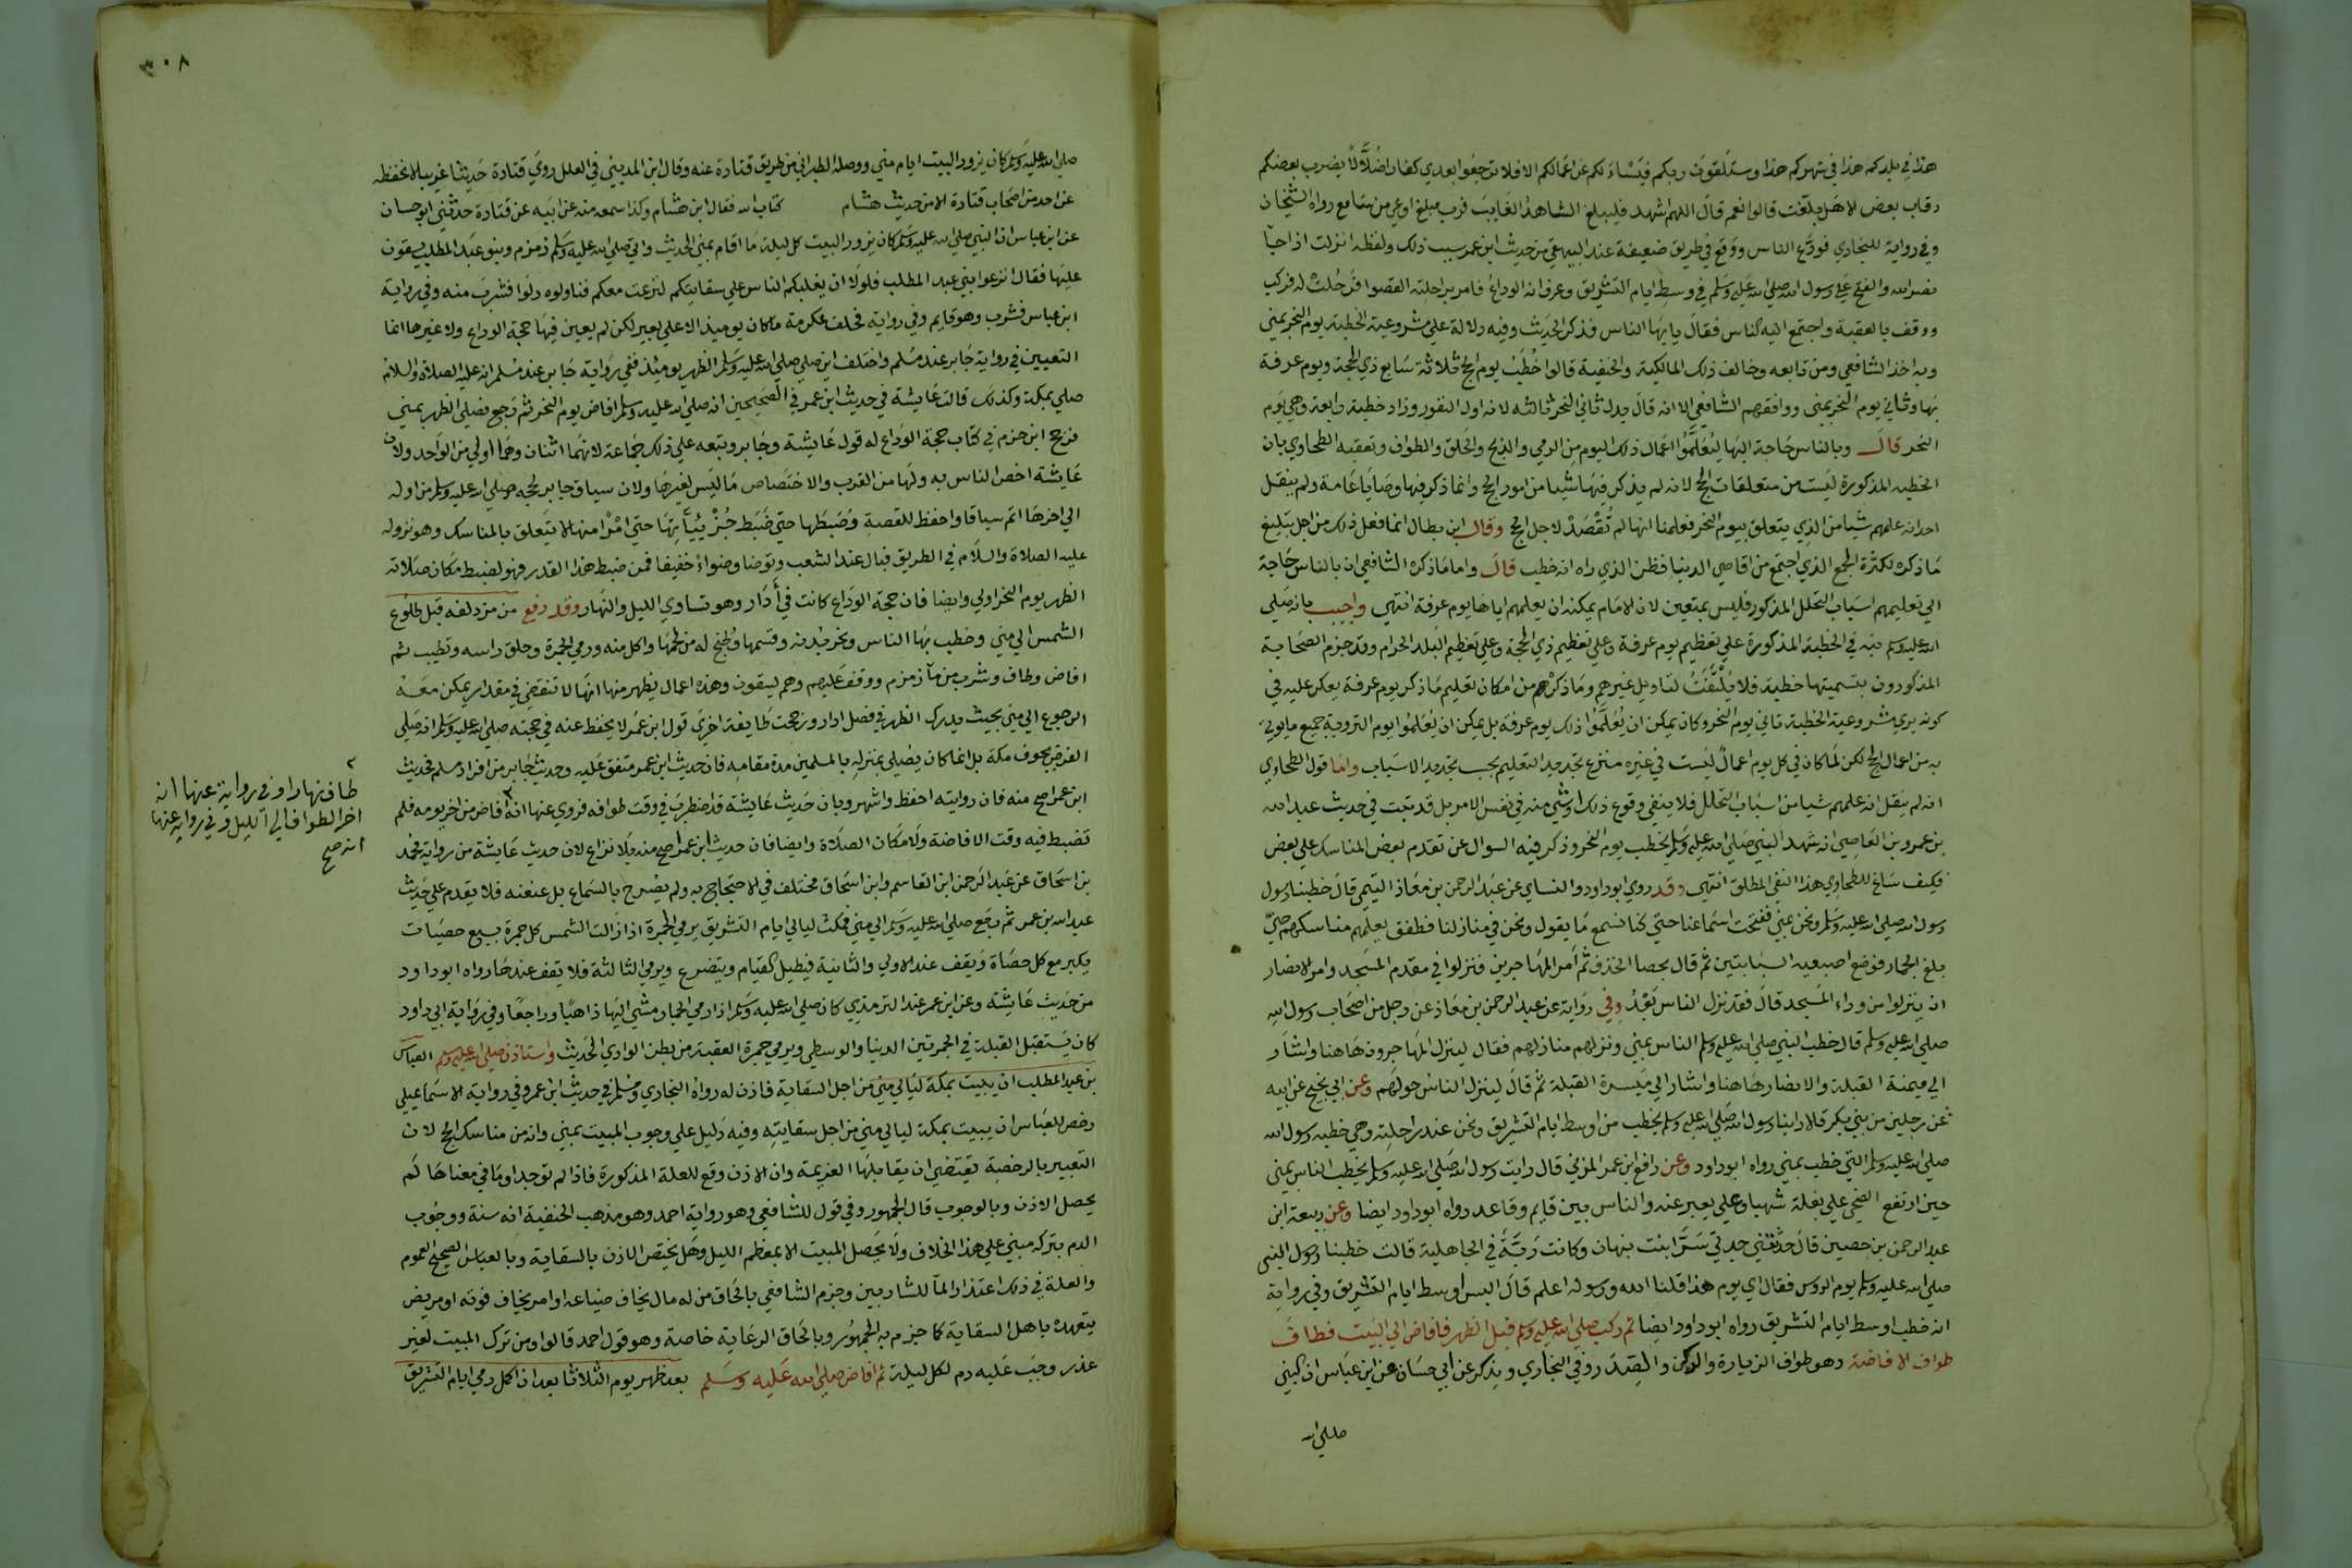 هذا في بلدكم هذا في شهركم هذا وستلقون ربكم فيسألكم عن اعمالكم الا فلا ترجعوا بعدي كفارا ضُلَّالًا يضرب بعضكم
رقاب بعض الا هل بلغت قالوا نعم قال اللهم اشهد فليبلغ الشاهد الغايب فرب مبلغ اوعى من سامع رواه الشيخان
وفي رواية للبخاري فودع الناس ووقع في طريق ضعيفة عند البيهقي من حديث ابن عمر سبب ذلك ولفظه انزلت اذا جا
نصر الله والفتح على رسول الله صلى الله عليه وسلم في وسط ايام التشريق وعرف انه الوداع فامر براحلته القصوا فرحلت له فركب
ووقف بالعقبة واجتمع اليه الناس فقال يايها الناس فذكر الحديث وفيه دلالة على مشروعية الخطبة يوم النحر بمني
وبه اخذ الشافعي ومن تابعه وخالف ذلك المالكية والحنفية قالوا خُطَبُ يوم الحج ثلاثة سابع ذي الحجة ويوم عرفة
بها وثاني يوم النحر بمني ووافقهم الشافعي الا انه قال بدل ثاني النحر ثالثه لانه اول النفر وزاد خطبة رابعة وهي يوم
النحر قال وبالناس حاجة اليها ليُعَلَّمُوا اعمال ذلك اليوم من الرمي والذبح والحلق والطواف وتعقبه الطحاوي بان
الخطبة المذكورة ليست من متعلقات الحج لانه لم يذكر فيها شيا من امور الحج وانما ذكر فيها وصايا عامة ولم ينقل
احد انه علمهم شيا من الذي يتعلق بيوم النحر فعلمنا انها لم تُقْصَدْ لاجل الحج وقال ابن بطال انما فعل ذلك من اجل تبليغ
ما ذكره لكثرة الجمع الذي اجتمع من اقاصي الدنيا فظن الذي راه انه خطب قال واما ما ذكره الشافعي ان بالناس حاجة
الي تعليمهم اسباب التحلل المذكور فليس بمتعين لان الامام يمكنه ان يعلمهم اياها يوم عرفة انتهى واجيب بانه صلى
الله عليه وسلم نبه في الخطبة المذكورة على تعظيم يوم عرفة وعلى تعظيم ذي الحجة وعلى تعظيم البلد الحرام وقد جزم الصحابة
المذكورون بتسميتها خطبة فلا يُلْتَفَتُ لتاويل غيرهم وما ذكرهم من امكان تعليم ما ذكر يوم عرفة يعكر عليه في
كونه يري مشروعية الخطبة ثاني يوم النحر وكان يمكن ان يُعَلَّمُوا ذلك يوم عرفة بل يمكن ان يُعَلَّمُوا يوم التروية جميع ما يوتي
به من اعمال الحج لكن لما كان في كل يوم اعمال ليست في غيره شرع تجديد التعليم بحسب تجديد الاسباب واما قول الطحاوي
انه لم ينقل انه علمهم شيا من اسباب التحلل فلا ينفي وقوع ذلك او شي منه في نفس الامر بل قد ثبت في حديث عبد الله
بن عمرو بن العاصي انه شهد النبي صلى الله عليه وسلم يخطب يوم النحر وذكر فيه السوال عن تقدم بعض المناسك على بعض
فكيف ساغ للطحاوي هذا النفي المطلق انتهى وقد روي ابو داود والنساي عن عبد الرحمن بن معاذ التيمي قال خطبنا رسول
رسول الله صلى الله عليه وسلم ونحن بمني ففتحت اسماعنا حتي كنا نسمع ما يقول ونحن في منازلنا فطفق يعلمهم مناسكهم حتي
بلغ الجمار فوضع اصبعيه السبابتين ثم قال بحصا الخذف ثم امر المهاجرين فنزلوا في مقدم المسجد وامر الانصار
ان ينزلوا من وراء المسجد قال فقد نزل الناس بَعْدُ وفي رواية عن عبد الرحمن بن معاذ عن رجل من اصحاب رسول الله
صلى الله عليه وسلم قال خطب النبي صلى الله عليه وسلم الناس بمني ونزلهم منازلهم فقال لينزل المهاجرون هاهنا واشار
الي ميمنة القبلة والانصار هاهنا واشار الي ميسرة القبلة ثم قال لينزل الناس حولهم وعن ابي نجيح عن ابيه
عن رجلين من بني بكر قالا راينا رسول الله صلى الله عليه وسلم يخطب من اوسط ايام التشريق ونحن عند راحلته وهي خطبة رسول الله
صلى الله عليه وسلم التي خطب بمني رواه ابو داود وعن رافع ابن عمر المزني قال رايت رسول الله صلى الله عليه وسلم يخطب الناس بمني
حين ارتفع الضحي على بغلة شهبا وعلي يعبر عنه والناس بين قايم وقاعد رواه ابو داود ايضا وعن ربيعة ابن
عبد الرحمن بن حصين قال حدثتني جدتي سَرَّا بنت نبهان وكانت ربة في الجاهلية قالت خطبنا رسول النبي
صلى الله عليه وسلم يوم الروس فقال اي يوم هذا قلنا الله ورسوله اعلم قال اليس اوسط ايام التشريق وفي رواية
انه خطب اوسط ايام التشريق رواه ابو داود ايضا ثم ركب صلى الله عليه وسلم قبل الظهر فافاض الي البيت فطاف
طواف الافاضة وهو طواف الزيارة والركن والصدر وفي البخاري ويذكر عن ابي حسان عن ابن عباس ان النبي
صلى الله
٣٠٨
صلى الله عليه وسلم كان يزور البيت ايام مني ووصله الطبراني من طريق قتادة عنه وقال ابن المديني في العلل روي قتادة حديثا غريبا لا نحفظه
عن احد من اصحاب قتادة الا من حديث هشام كتاب الله فقال ابن هشام وكذا سمعه منه عن ابيه عن قتادة حدثني ابو حسان
عن ابن عباس ان النبي صلى الله عليه وسلم كان يزور البيت كل ليلة ما اقام بمني الحديث واتي صلى الله عليه وسلم زمزم وبنو عبد المطلب يسقون
عليها فقال انزعوا بني عبد المطلب فلولا ان يغلبكم الناس على سقايتكم لنزعت معكم فناولوه دلوا فشرب منه وفي رواية
ابن عباس فشرب وهو قايم وفي رواية فحلف عكرمة ما كان يوميذ الا على بعير لكن لم يعين فيها حجة الوداع ولا غيرها انما
التعيين في رواية جابر عند مسلم واختلف اين صلى صلى الله عليه وسلم الظهر يوميذ ففي رواية جابر عند مسلم انه عليه الصلاة والسلام
صلى بمكة وكذلك قالت عايشة في حديث ابن عمر في الصحيحين انه صلى الله عليه وسلم افاض يوم النحر ثم رجع فصلى الظهر بمني
فرجح ابن حزم في كتاب حجة الوداع له قول عايشة وجابر وتبعه على ذلك جماعة لانهما اثنان وهما اولي من الواحد ولان
عايشة اخص الناس به ولها من القرب والاختصاص ما ليس لغيرها ولان سياق جابر لحجه صلى الله عليه وسلم من اوله
الي اخرها اتم سياقا واحفظ للقصة وضبطها حتى ضبط جُزْئِيَّاتِهَا حتي امْرًا منها لا يتعلق بالمناسك وهو نزوله
عليه الصلاة والسلام في الطريق فبال عند الشعب وتوضا وضواً خفيفا فمن ضبط هذا القدر فهو لضبط مكان صلاته
الظهر يوم النحر اولي وايضا فان حجة الوداع كانت في أَدَار وهو تساوي الليل والنهار وقد دفع من مزدلفة قبل طلوع
الشمس الي مني وخطب بها الناس ونحر بُدنه وقسمها وطُبخ له من لحمها واكل منه ورمي الجمرة وحلق راسه وتطيب ثم
افاض وطاف وشرب من مآ زمزم ووقف عليهم وهم يسقون وهذه اعمال يظهر منها انها لا تنقضي في مقدار يمكن معه
الرجوع الي مني بحيث يدرك الظهر في فصل ادار ورجحت طايفة اخري قول ابن عمر لا يحفظ عنه في حجته صلى الله عليه وسلم انه صلى
الفرض بجوف مكة بل انما كان يصلي بمنزله بالمسلمين مدة مقامه فان حديث ابن عمر متفق عليه وحديث جابر من افراد مسلم فحديث
ابن عمر اصح منه فان روايته احفظ واشهر وبان حديث عايشة قد اضطرب في وقت طوافه فروي عنها انه ٢ افاض من اخر يومه فلم
تضبط فيه وقت الافاضة ولا مكان الصلاة وايضا فان حديث ابن عمر اصح منه بلا نزاع لان حديث عايشة من رواية محمد
بن اسحاق عن عبد الرحمن ابن القاسم وابن اسحاق مختلف في الاحتجاج به ولم يصرح بالسماع بل عنعنه فلا يقدم على حديث
عبد الله بن عمر ثم رجع صلى الله عليه وسلم الي مني فمكث ليالي ايام التشريق يرمي الجمرة اذا زالت الشمس كل جمرة بسبع حصيات
يكبر مع كل حصاة ويقف عند الاولي والثانية فيطيل القيام ويتضرع ويرمي الثالثة فلا يقف عندها رواه ابو داود
من حديث عايشة وعن ابن عمر عند الترمذي كان صلى الله عليه وسلم اذا رمي الجمار مشي اليها ذاهبا وراجعًا وفي رواية ابي داود
كان يستقبل القبلة في الجمرتين الدنيا والوسطي ويرمي جمرة العقبة من بطن الوادي الحديث واستاذن صلى الله عليه وسلم العباس
بن عبد المطلب ان يبيت بمكة ليالي مني من اجل السقاية فاذن له رواه البخاري ومسلم في حديث ابن عمر وفي رواية الاسماعيلي
رخص للعباس ان يبيت بمكة ليالي مني من اجل سقايته وفيه دليل على وجوب المبيت بمني وانه من مناسك الحج لان
التعبير بالرخصة يقتضي ان يقابلها العزيمة وان الاذن وقع للعلة المذكورة فاذا لم توجد او ما في معناها لم
يحصل الاذن وبالوجوب قال الجمهور وفي قول للشافعي وهو رواية احمد وهو مذهب الحنفية انه سنة ووجوب
الدم بتركه مبني على هذا الخلاف ولا يحصل المبيت الا بمعظم الليل وهل يختص الاذن بالسقاية وبالعباس الصحيح العموم
والعلة في ذلك اعداد المآ للشاربين وجزم الشافعي بالحاق من له مال يخاف ضياعه او امر يخاف فوته او مريض
يتعهده باهل السقاية كما جزم به الجمهور وبالحاق الرعاية خاصة وهو قول احمد قالوا ومن ترك المبيت لغير
عذر وجب عليه دم لكل ليلة ثم افاض صلى الله عليه وسلم بعد ظهر يوم الثلاثا بعد ان اكمل رمي ايام التشريق
٢
طاف نهارا وفي رواية عنها انه
اخر الطواف الي الليل وفي رواية عنها
انه صح